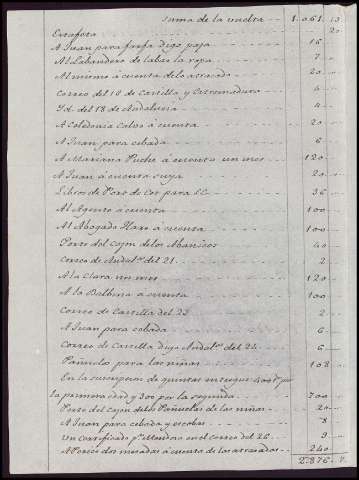 Suma de la vuelta 1.061. 13
Estafeta 20
A Juan para farfa digo paja 16
Al Labandero de labar la ropa 7
Al mismo á cuenta de lo atrasado 20
Correo del 18 de Castilla y Extremadura 4
Yd. del 18 de Andalucia 4
A Celedonia Calvo á cuenta 20
A Juan para cebada 6
A Mariana Puche á cuenta un mes 120
A Juan á cuenta suya 20
Libros de Poro de Cos para 36
Al Agente á cuenta 100
Al Abogado Haro á cuenta 100
Porte del cajon de los Abanicos 40
Correo de Andal.ª del 21 2
A la Clara un mes 120
A la Balbina á cuenta 100
Correo de Castilla del 22 2
A Juan para cebada 6
Correo de Castilla digo Andal.ª del 24 6
Pañuelos para las niñas 108
En la suscripcion de quintas entregué 400 r.s por
la primera edad y 300 por la segunda 700
Porte del cajon de los Pañuelos de las niñas 20
A Juan para cebada y escobas 8
Un certificado p.ª Mendoza en el correo del 26 9
A Perez dos mesadas á cuenta de las atrasadas 240
2.876